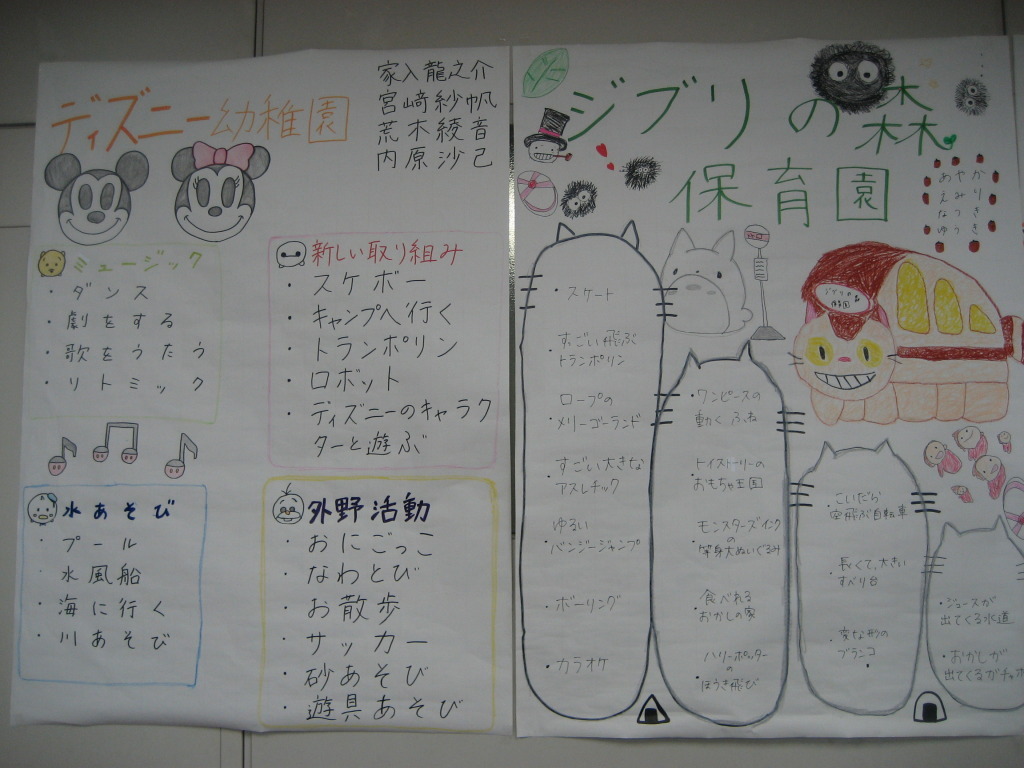 ディズニー幼稚園
家入龍之介
宮崎紗帆
荒木綾音
内原沙己
ミュージック
・ダンス
・劇をする
・歌をうたう
・リトミック
新しい取り組み
・スケボー
・キャンプへ行く
・トランポリン
・ロボット
・ディズニーのキャラク
ターと遊ぶ
水あそび
・プール
・水風船
・海に行く
・川あそび
外野活動
・おにごっこ
・なわとび
・お散歩
・サッカー
・砂あそび
・遊具あそび
ジブリの森
保育園
あやか
えみり
なつき
ゆうき
・スケート
・すごい飛ぶ
トランポリン
・ロープの
メリーゴーランド
・すごい大きな
アスレチック
ゆるい
・バンジージャンプ
・ボーリング
・カラオケ
・ワンピースの
動く、ふね
・トイストーリーの
おもちゃ王国
・モンスターズインク
の
等身大ぬいぐるみ
・食べれる
おかしの家
・ハリーポッター
の
ほうき飛び
・こいだら
空飛ぶ自転車
・長くて、大きい
すべり台
・変な形の
ブランコ
・ジュースが
出てくる水道
・おかしが
出てくるガチャガ